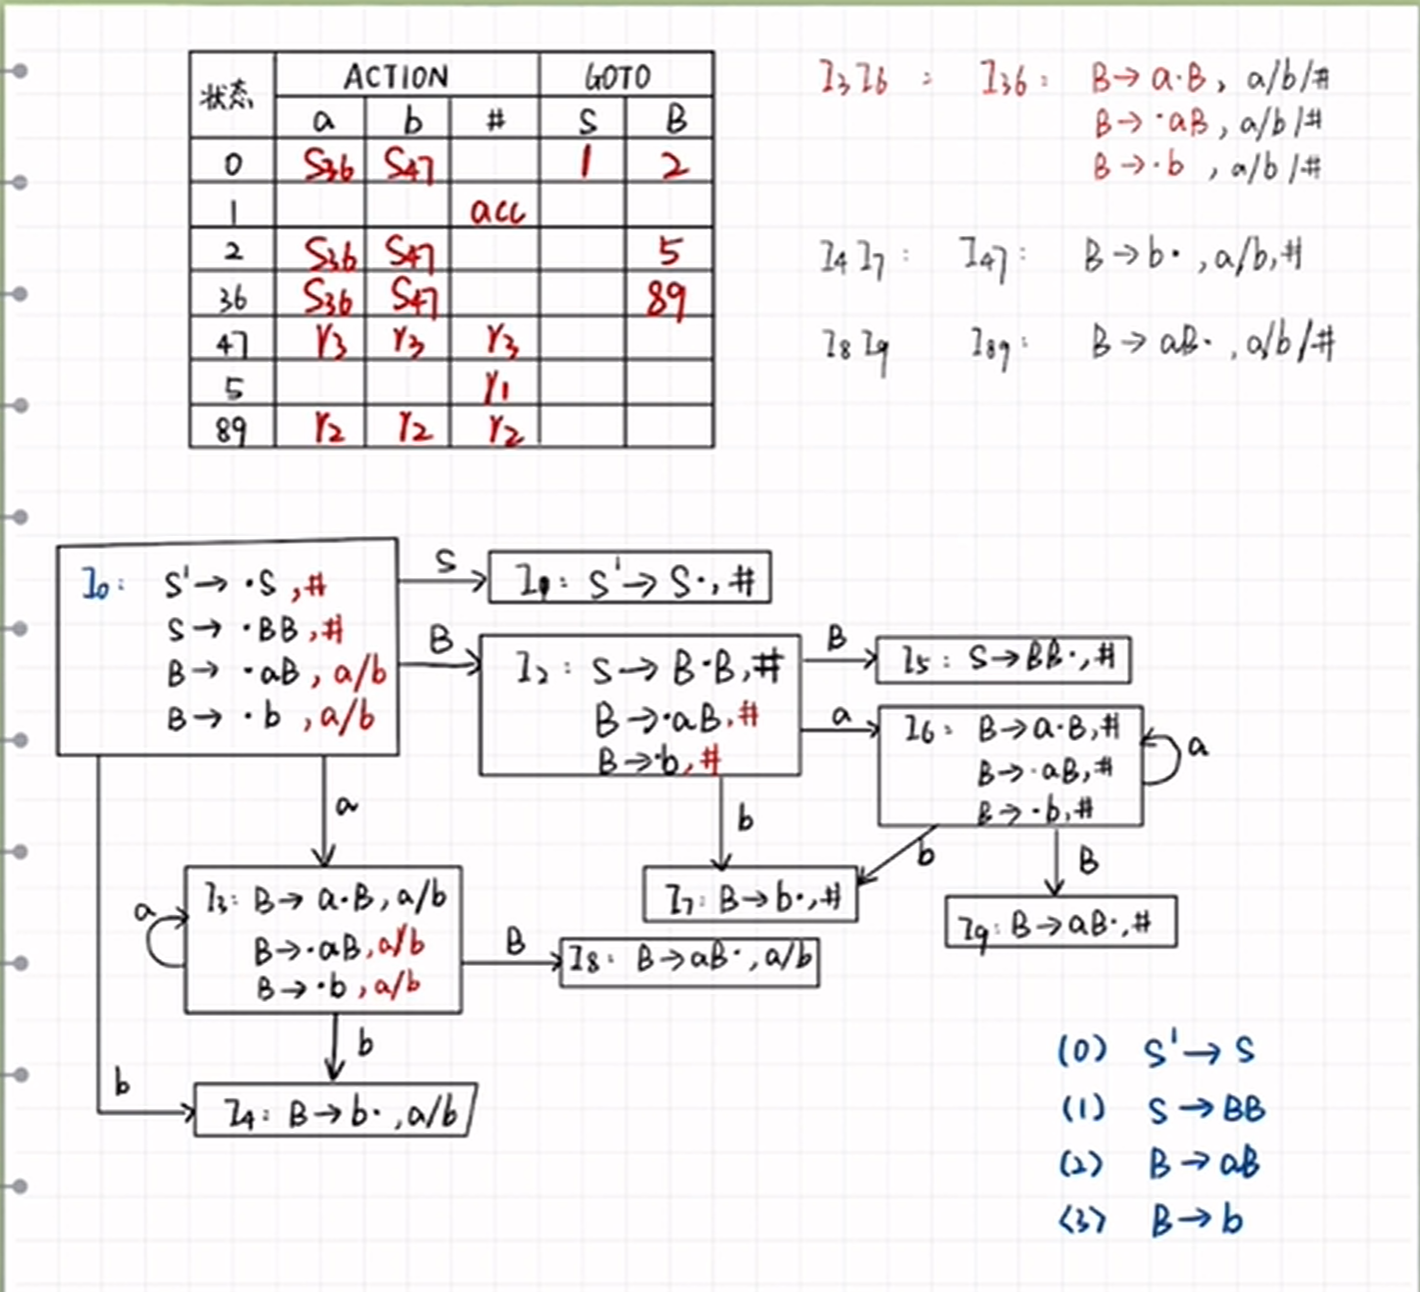 状态 ACTION GOTO
a b # S B
0 S36 S47 1 2
1 acc
2 S36 S47 5
36 S36 S47 89
47 r3 r3 r3
5 r1
89 r2 r2 r2
I3 I6 : I36: B→a·B, a/b/#
B→·aB, a/b/#
B→·b , a/b/#
I4 I7: I47: B→b·, a/b,#
I8 I9 I89: B→aB·, a/b/#
I0: S'→·S,#
S→·BB,#
B→·aB, a/b
B→·b ,a/b
S
I1: S'→S·,#
B
I2: S→B·B,#
B→·aB,#
B→·b,#
B
I5: S→BB·,#
a
I6: B→a·B,#
B→·aB,#
B→·b,#
a
a
b
b
B
I3: B→a·B, a/b
B→·aB,a/b
B→·b ,a/b
a
B
I7: B→b·,#
I9: B→aB·,#
I8: B→aB·, a/b
b
b
I4: B→b·,a/b
(0) S'→S
(1) S→BB
(2) B→aB
(3) B→b